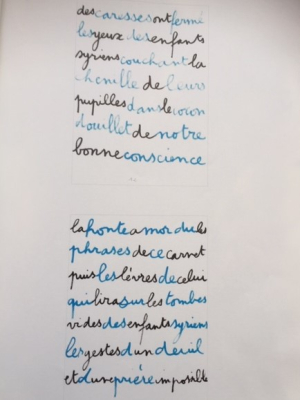 des caresses ont fermé
les yeux des enfants
syriens couchant la
chenille de leurs
pupilles dans le cocon
douillet de notre
bonne conscience
la honte a mordu les
phrases de ce carnet
puis les lèvres de celui
qui lira sur les tombes
vides des enfants syriens
les gestes d'un deuil
et d'une prière impossible